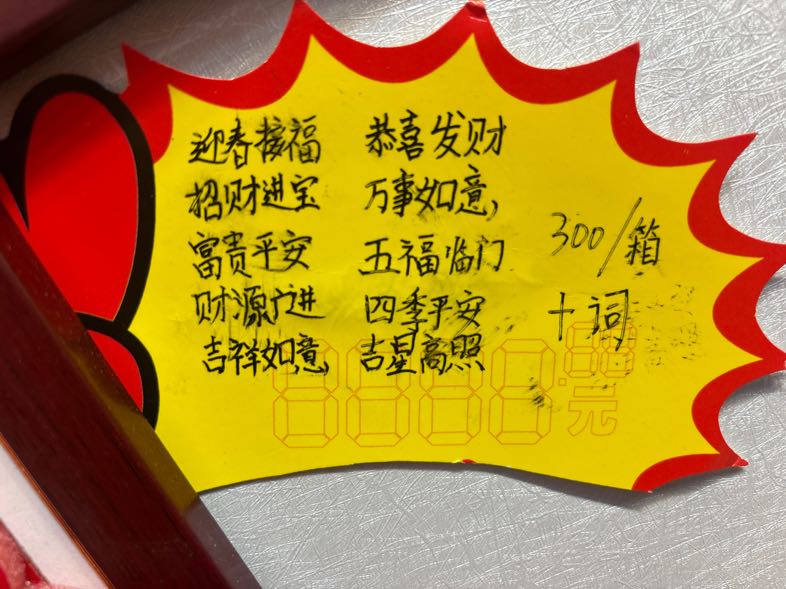 迎春接福 恭喜发财
招财进宝 万事如意,
富贵平安 五福临门 300/箱
财源广进 四季平安 十词
吉祥如意, 吉星高照
8888.88
元